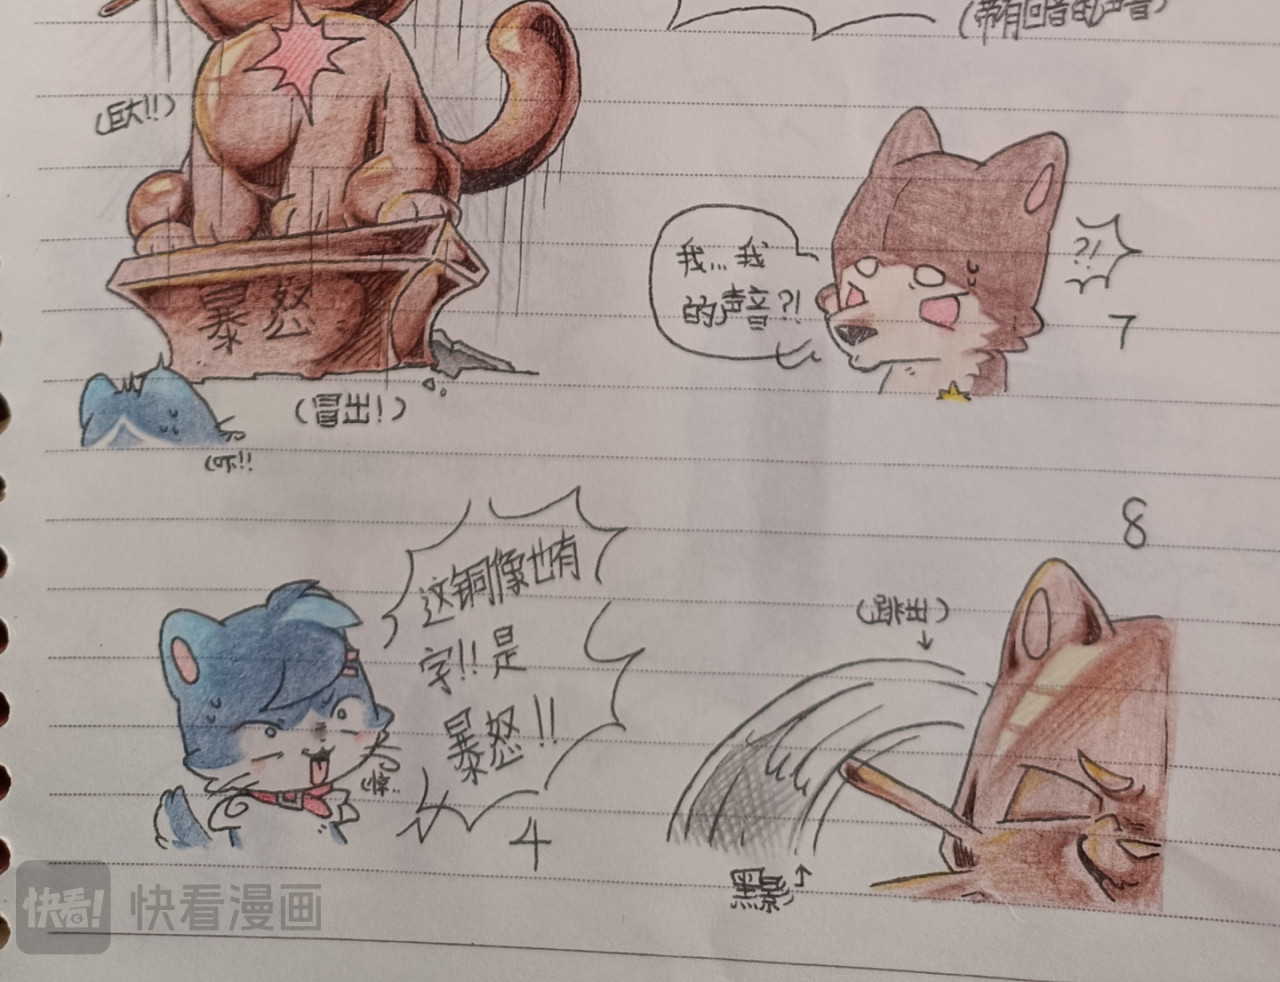 (带有回音的声音)
(巨大!!)
暴怒
(冒出!)
(吓!!
我...我
的声音?!
?!
7
这铜像也有
字!!是
暴怒!!
(惊..
4
8
(跳出)
黑影
快看!
快看漫画